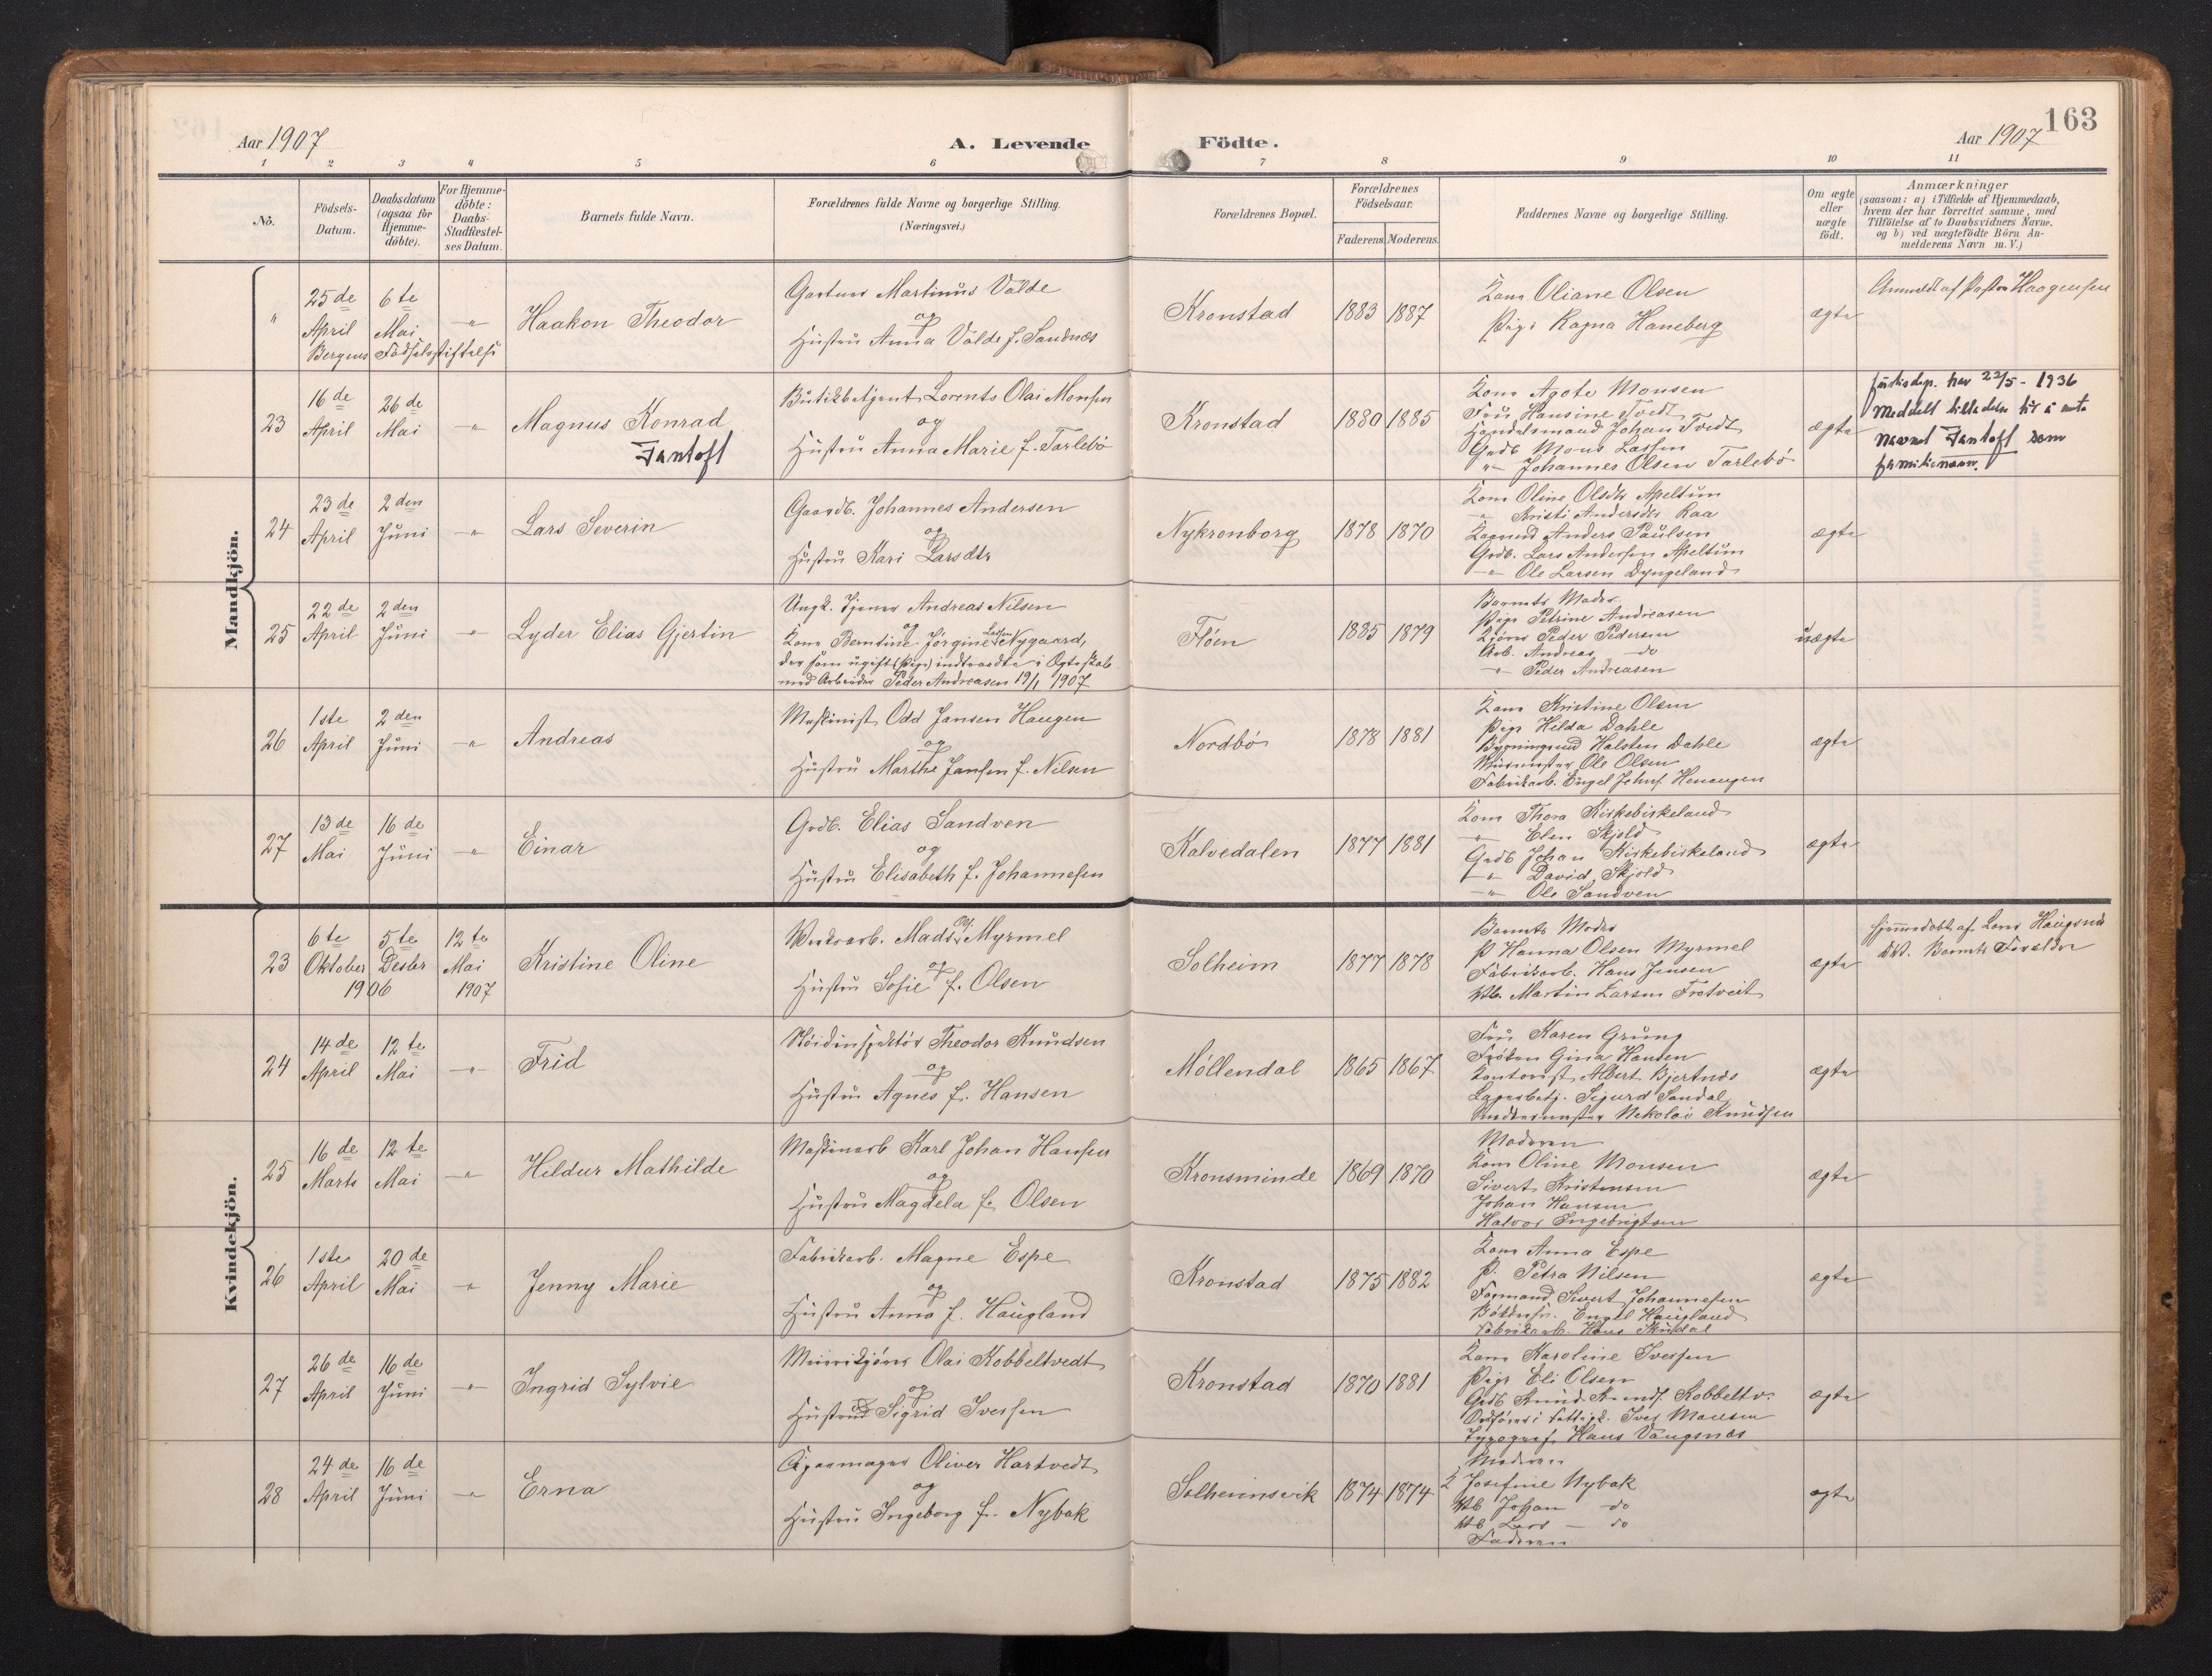 163
Aar 1907
A. Levende
Födte.
Aar 1907
1 2 3 4 5 6 7 8 9 10 11
No.
Födsels-Datum.
Daabsdatum (ogsaa for Hjemme-döbte).
For Hjemme-döbte: Daabs-Stadfæstel-ses Datum.
Barnets fulde Navn.
Forældrenes fulde Navne og borgerlige Stilling. (Næringsvei.)
Forældrenes Bopæl.
Forældrenes Födselsaar.
Faderens. Moderens.
Faddernes Navne og borgerlige Stilling.
Om ægte eller uægte födt.
Anmærkninger
(saasom: a) i Tilfælde af Hjemmedaab,
hvem der har forrettet samme, med
Tilföielse af to Daabsvidners Navne.
og b) ved uægtefödte Börn An-
melderens Navn m. V.)
Mandkjön.
" 25de April 6te Mai -"- Haakon Theodor
Bergens Fødselsstiftelse
Gartner Martinus Valde
og
Hustru Anna Valde f. Sandnæs
Kronstad 1883 1887
Kone Oliane Olsen
Pige Ragna Haneberg
ægte
Anmeldt af Pastor Haagensen
23 16de April 26de Mai -"- Magnus Konrad
Fantoft
Butikbetjent Lorents Olai Monsen
og
Hustru Anna Marie f. Tarlebø
Kronstad 1880 1885
Kone Agote Monsen
Fru Hansine Tvedt
Handelsmand Johan Tvedt
Grdb Mons Larsen
-"- Johannes Olsen Tarlebø
ægte
Justisdep. har 22/5 - 1936
meddelt tilladelse til å anta
navnet Fantoft som
familienavn.
24 23de April 2den Juni -"- Lars Severin
Gaardb. Johannes Andersen
og
Hustru Kari Larsdtr
Nykronborg 1878 1870
Kone Oline Olsdtr Apeltun
-"- Kristi Andersdtr Raa
Anders Paulsen
Grdb. Lars Andersen Apeltun
-"- Ole Larsen Dyngeland
ægte
25 22de April 2den Juni -"- Lyder Elias Gjertin
Ungk. Tjener Andreas Nilsen
og
Kone Berntine Jørgine Larsen Nygaard,
der som ugift (Pige) indtraadte i Ægteskab
med Arbeider Peder Andreasen 19/1 1907
Fløen 1885 1879
Barnets Moder
Pige Petrine Andreasen
Kjører Peder Pedersen
Arb. Andreas do
-"- Peder Andreasen
uægte
26 1ste April 2den Juni -"- Andreas
Maskinist Odd Jansen Haugen
og
Hustru Marthe Jansen f. Nilsen
Nordbø 1878 1881
Kone Kristine Olsen
Pige Hilda Dahle
Bygningsmd Halsten Dahle
Murmester Ole Olsen
Fabrikarb. Engel Johns. Henangen
ægte
27 13de Mai 16de Juni -"- Einar
Grdb. Elias Sandven
og
Hustru Elisabeth f. Johannesen
Kalvedalen 1877 1881
Kone Thora Kirkebirkeland
-"- Elen Skjold
Grdb Johan Kirkebirkeland
-"- David Skjold
-"- Ole Sandven
ægte
Kvindekjön.
23 6te Oktober 1906 5te Desbr 12te Mai 1907 Kristine Oline
Verksarb. Mads Ols. Myrmel
og
Hustru Sofie f. Olsen
Solheim 1877 1878
Barnets Moder
P Hanna Olsen Myrmel
Fabrikarb. Hans Jensen
Martin Larsen Frotveit
ægte
Hjemmedøbt af Lars Haugsnæs
DV. Barnets Forældre
24 14de April 12te Mai -"- Frid
Veidinspektør Theodor Knudsen
og
Hustru Agnes f. Hansen
Møllendal 1865 1867
Fru Karen Grung
Frøken Gina Hansen
Kontorist Albert Bjertnæs
Lagerbetj. Sigurd Sandal
Nikolai Knudsen
ægte
25 16de Marts 12te Mai -"- Hildur Mathilde
Maskinarb Karl Johan Hansen
og
Hustru Magdela f. Olsen
Kronsminde 1869 1870
Moderen
Kone Oline Monsen
Sivert Kristensen
Johan Hansen
Halvor Ingebrigtsen
ægte
26 1ste April 20de Mai -"- Jenny Marie
Fabrikarb. Magne Espe
og
Hustru Anna f. Haugland
Kronstad 1875 1882
Kone Anna Espe
P. Petra Nilsen
Formand Sivert Johannesen
Engel Haugland
Fabrikarb. Hans Skudal
ægte
27 26de April 16de Juni -"- Ingrid Sylvie
Meierikjører Olai Kobbeltvedt
og
Hustru Sigrid Iversen
Kronstad 1870 1881
Kone Karoline Iversen
Pige Eli Olsen
Grdb Knud Knuds. Kobbeltv.
Ordfører i Fattigk. Iver Monsen
Typograf Hans Vangsnæs
ægte
28 24de April 16de Juni -"- Erna
Cigarmager Oliver Hartvedt
og
Hustru Ingeborg f. Nybak
Solheimsvik 1874 1874
Moderen
K Josefine Nybak
Johan do
Lars do
Faderen
ægte